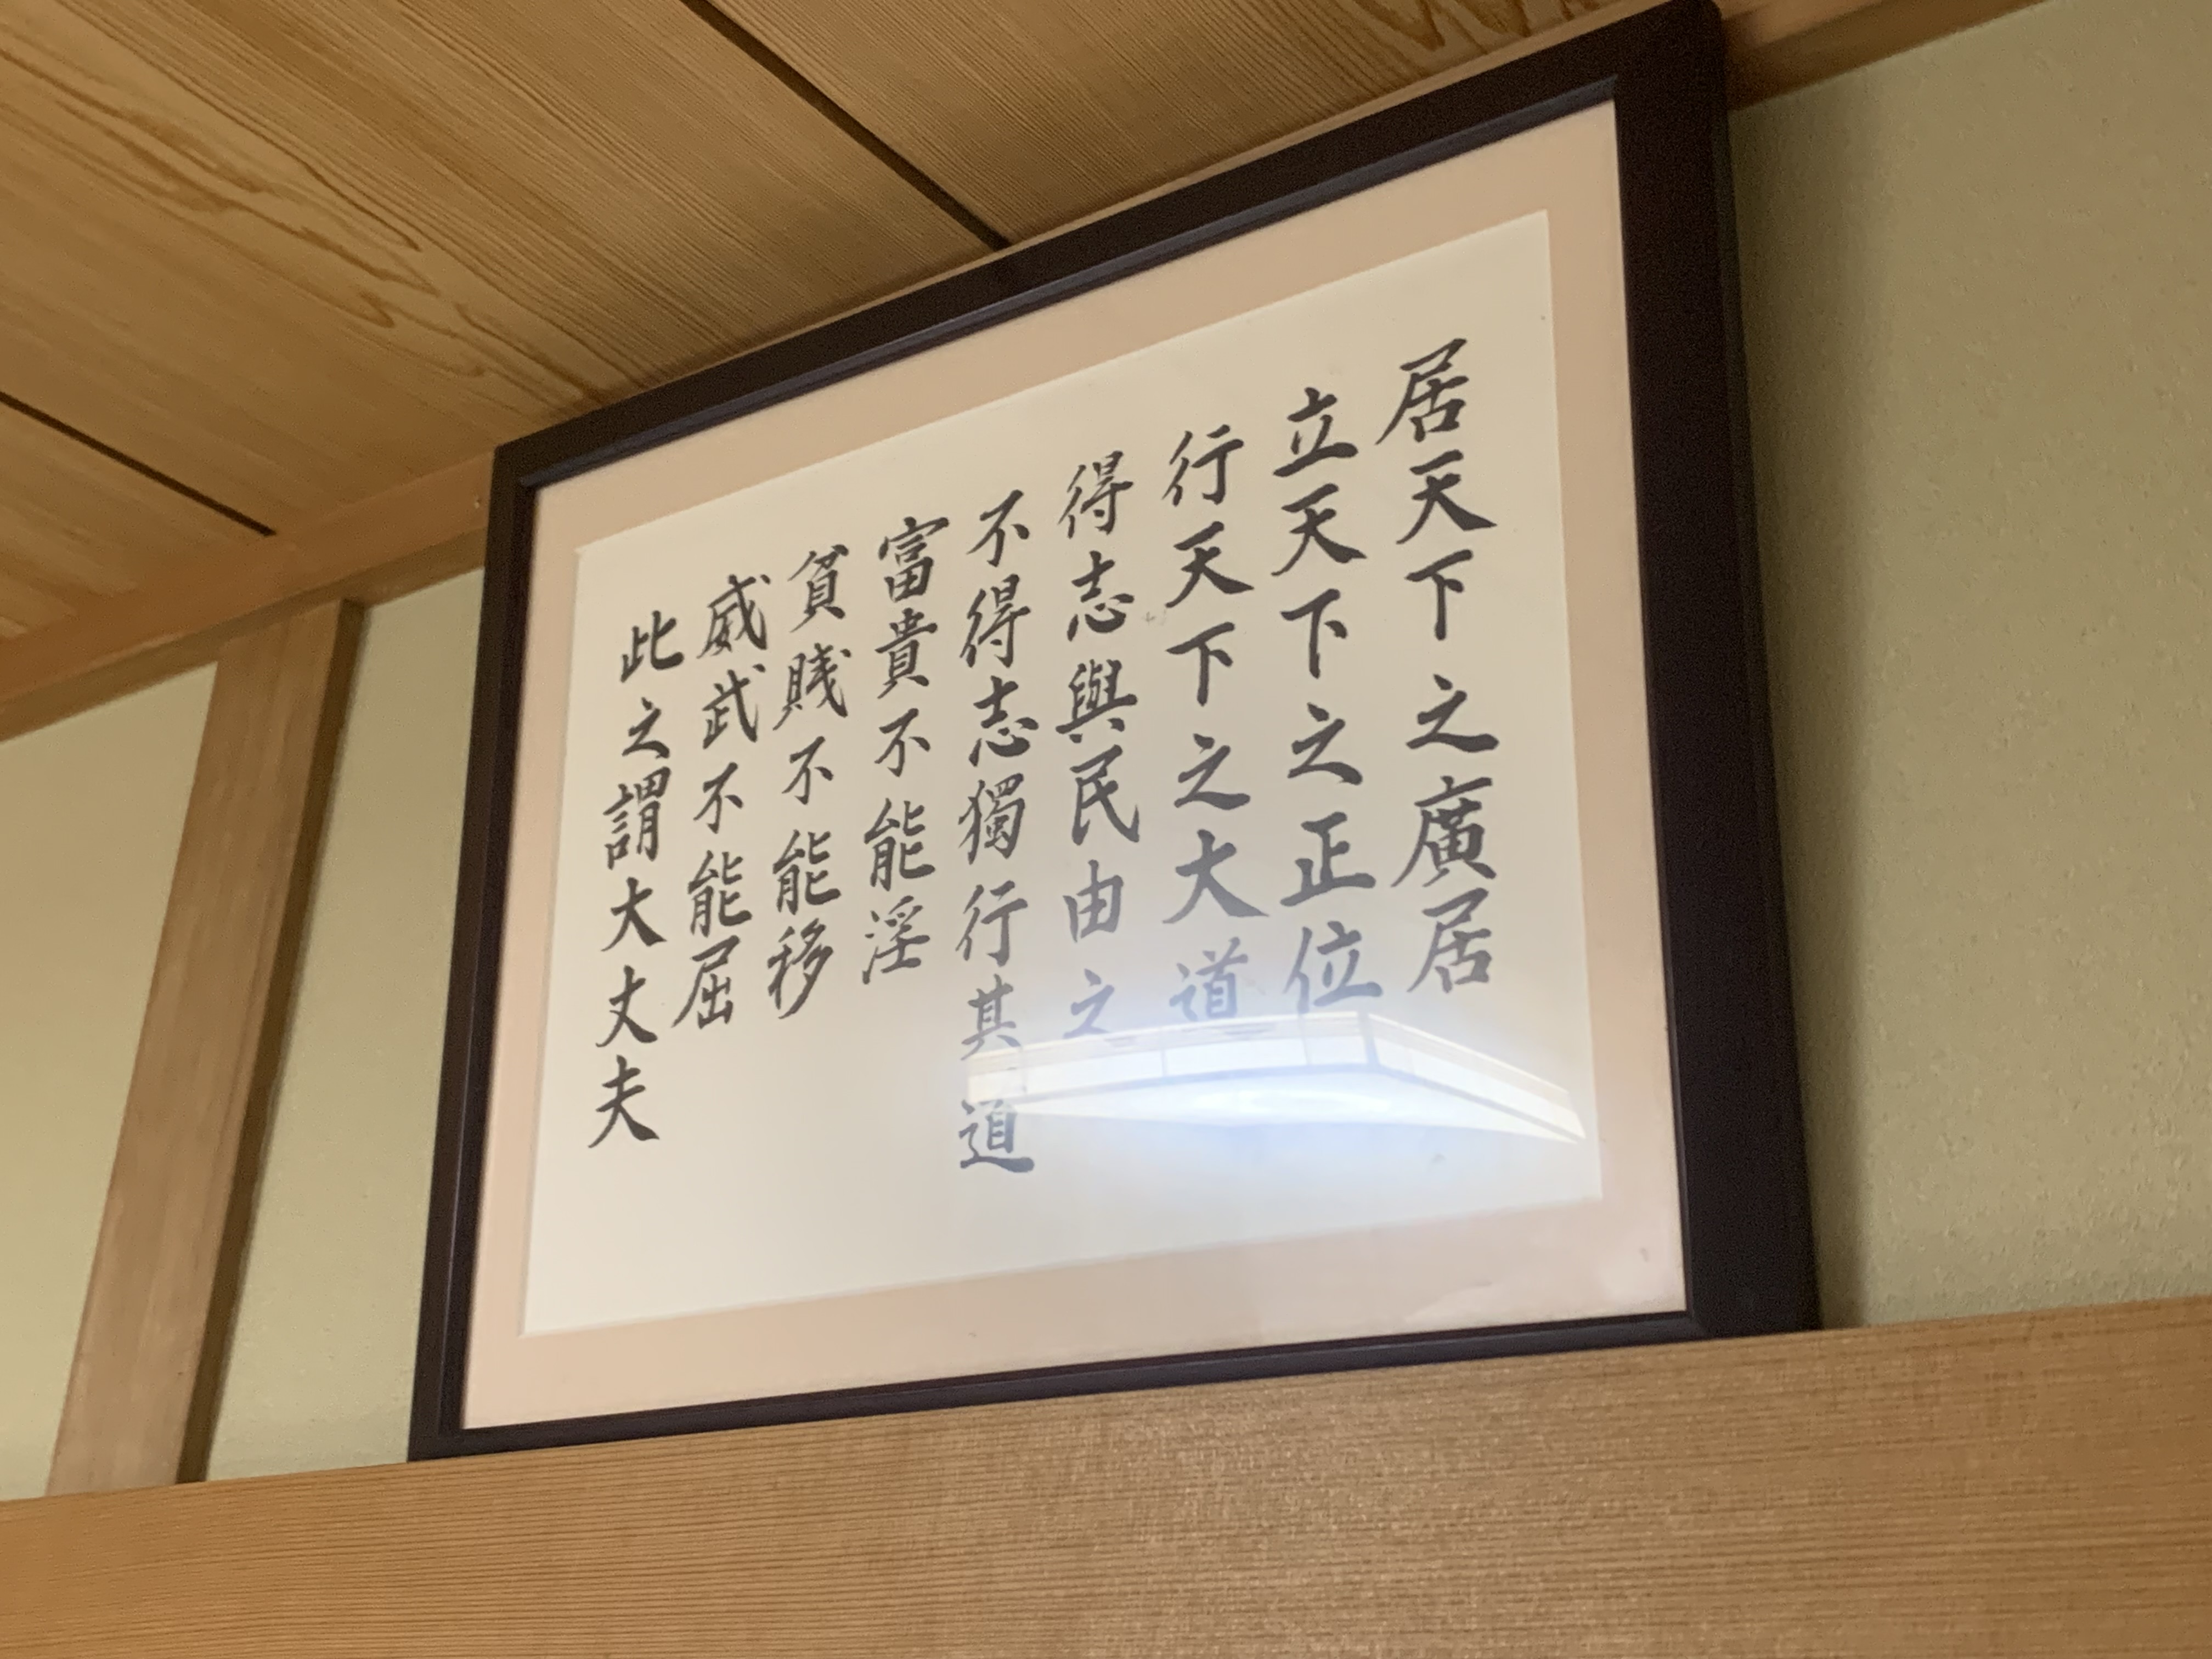 居天下之廣居
立天下之正位
行天下之大道
得志與民由之
不得志獨行其道
富貴不能淫
貧賤不能移
威武不能屈
此之謂大丈夫